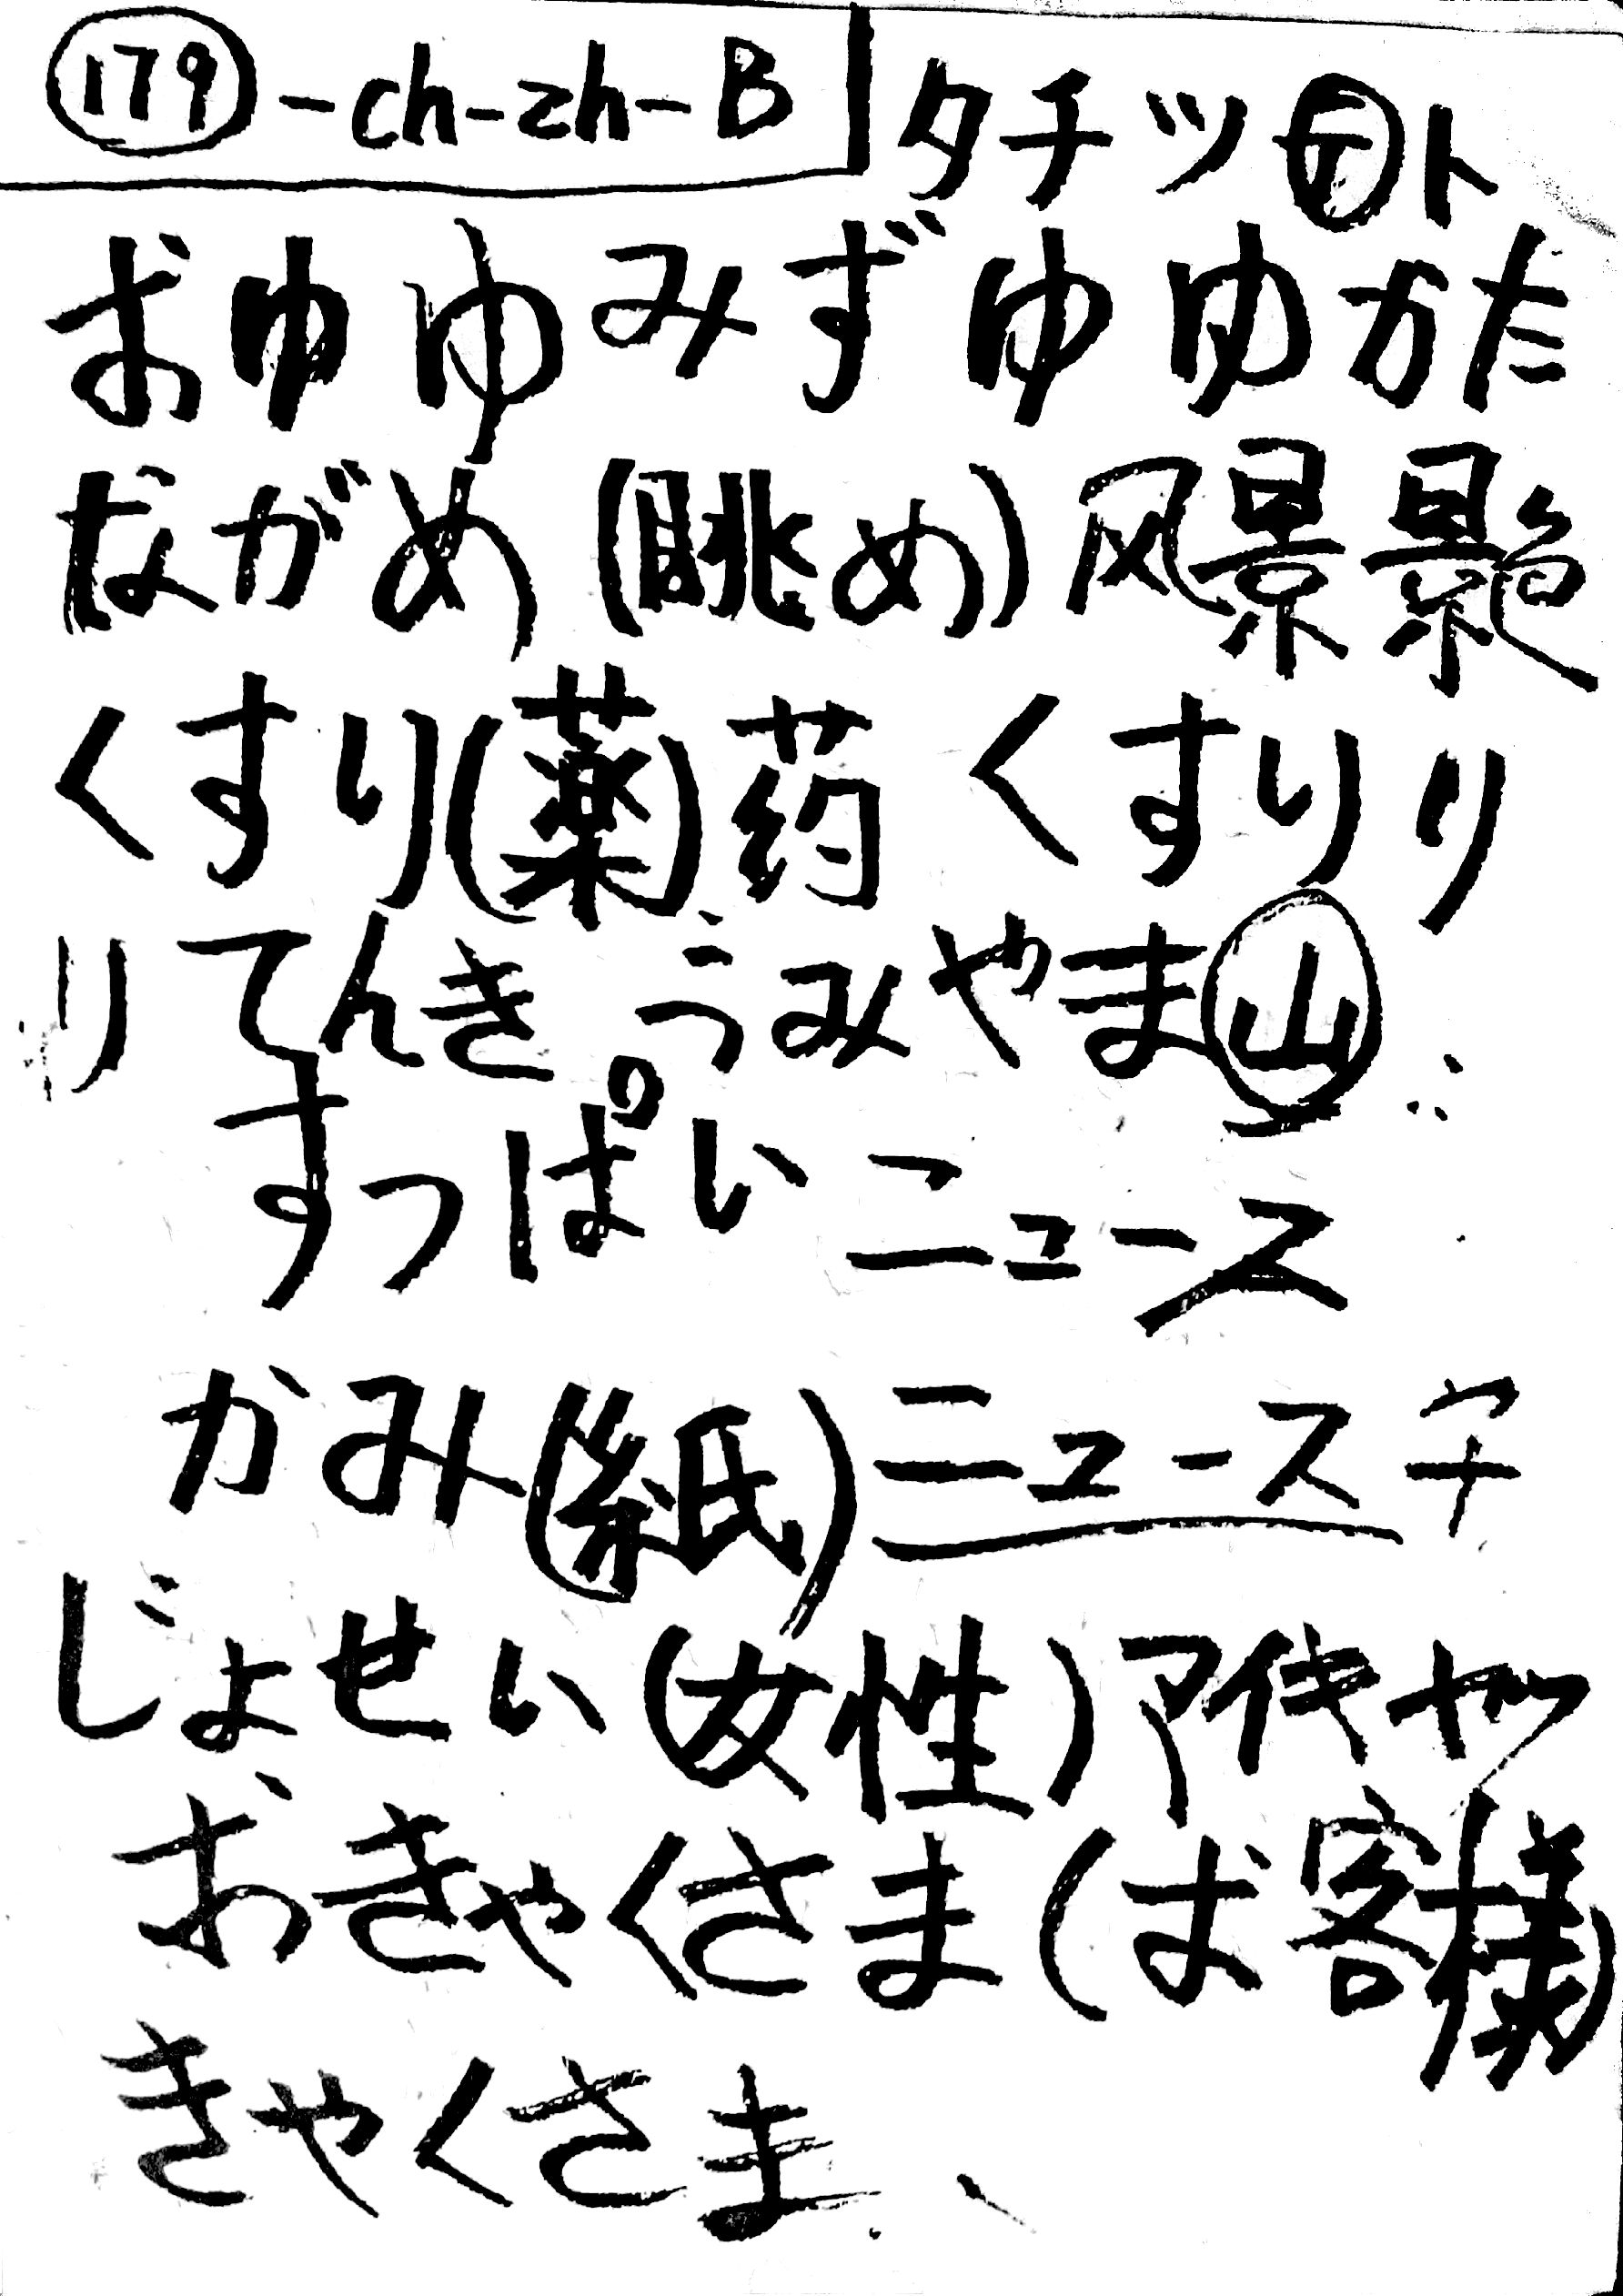 179-ch-zh-B タチツテト
おゆゆみずゆゆかた
ながめ(眺め)风景影
くすり(薬)药くすりり
りてんきうみやま山
すっぱいニュース
かみ(紙)ニュース
じょせい(女性)
おきゃくさま(お客様)
きゃくさま、